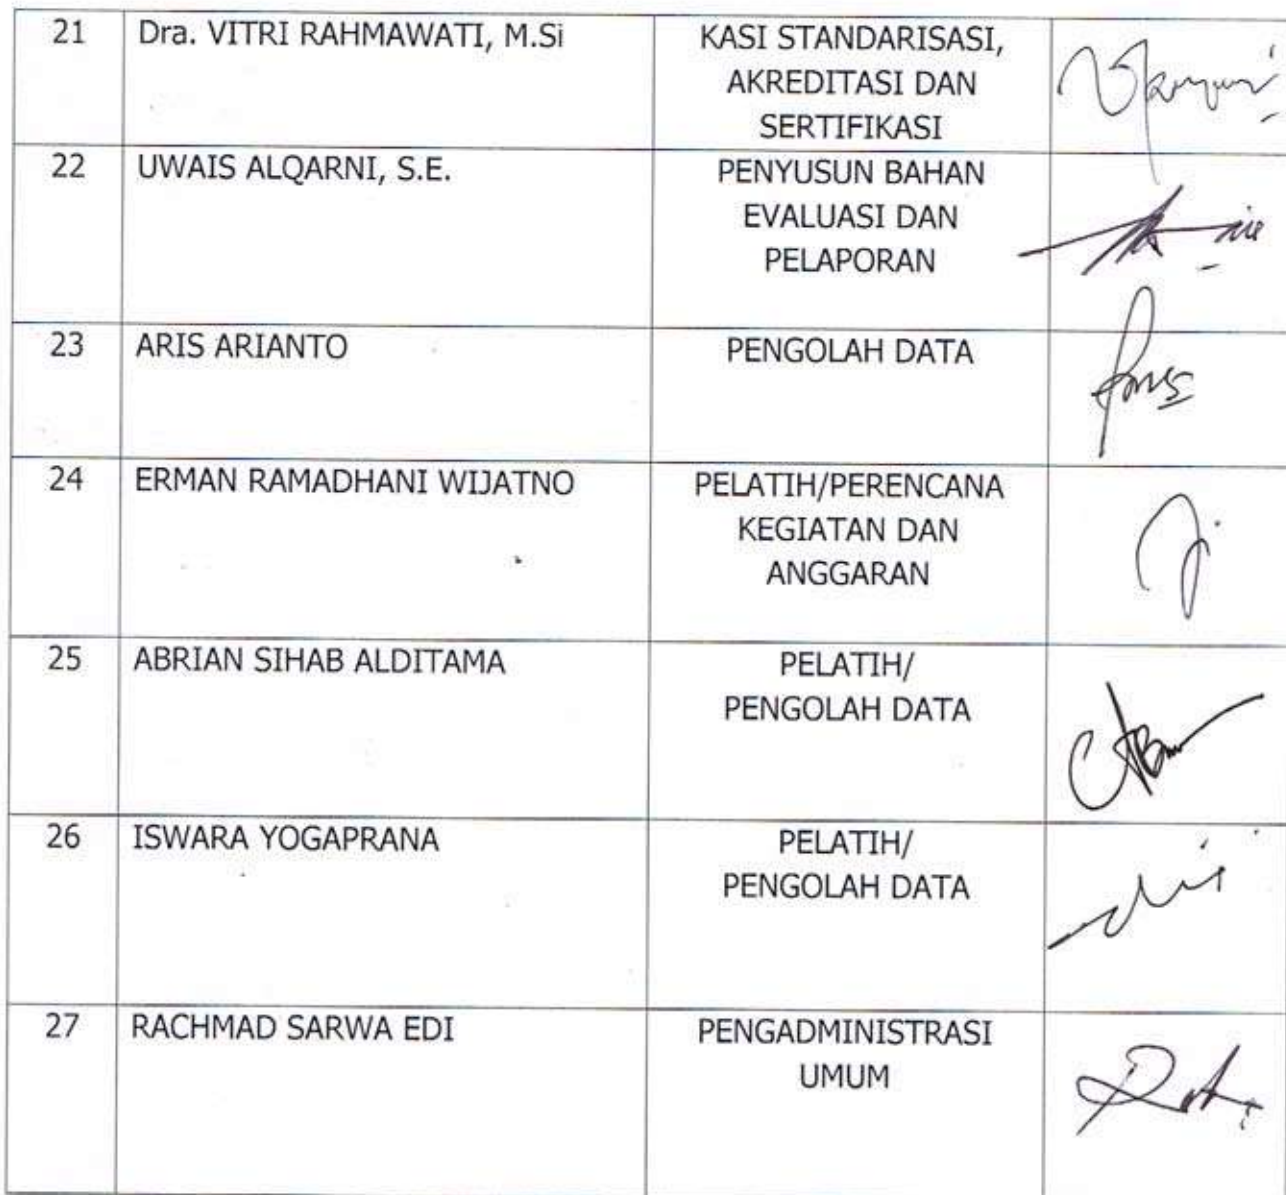 21 Dra. VITRI RAHMAWATI, M.Si KASI STANDARISASI,
AKREDITASI DAN
SERTIFIKASI
22 UWAIS ALQARNI, S.E. PENYUSUN BAHAN
EVALUASI DAN
PELAPORAN
23 ARIS ARIANTO PENGOLAH DATA
24 ERMAN RAMADHANI WIJATNO PELATIH/PERENCANA
KEGIATAN DAN
ANGGARAN
25 ABRIAN SIHAB ALDITAMA PELATIH/
PENGOLAH DATA
26 ISWARA YOGAPRANA PELATIH/
PENGOLAH DATA
27 RACHMAD SARWA EDI PENGADMINISTRASI
UMUM